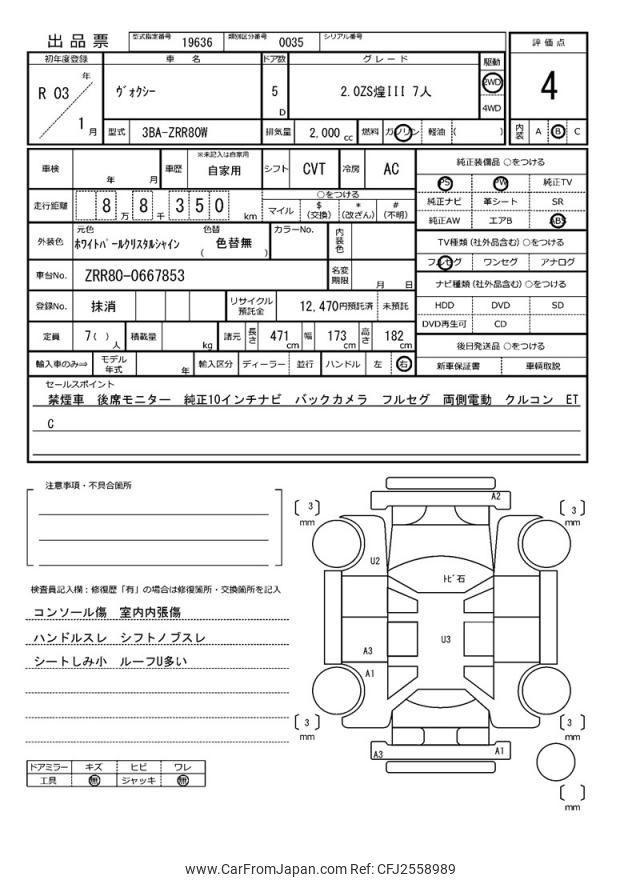 出品票
型式指定番号 19636 類別区分番号 0035 シリアル番号
評価点
4
初年度登録 車名 ドア数 グレード 駆動
R 03 年 1 月
ヴォクシー 5 D 2.0ZS煌III 7人 2WD 4WD
型式 3BA-ZRR80W 排気量 2,000 cc 燃料 ガソリン 軽油 ( ) 内装 A B C
車検 年 月 車歴 ※未記入は自家用 自家用 シフト CVT 冷房 AC
走行距離 8 万 8 千 350 km ○をつける
マイル $(交換) *(改ざん) #(不明)
外装色 元色 ホワイトパールクリスタルシャイン 色替 ( 色替無 ) カラーNo. 内装色
車台No. ZRR80-0667853 名変期限 月 日
登録No. 抹消 リサイクル預託金 12,470円預託済 未預託
定員 7( ) 人 積載量 kg 諸元 長さ 471 cm 幅 173 cm 高さ 182 cm
輸入車のみ⇒ モデル年式 年 輸入区分 ディーラー 並行 ハンドル 左 右
純正装備品 ○をつける
PS PW 純正TV
純正ナビ 革シート SR
純正AW エアB ABS
TV種類 (社外品含む) ○をつける
フルセグ ワンセグ アナログ
ナビ種類 (社外品含む) ○をつける
HDD DVD SD
DVD再生可 CD
後日発送品 ○をつける
新車保証書 車輌取説
セールスポイント
禁煙車 後席モニター 純正10インチナビ バックカメラ フルセグ 両側電動 クルコン ET
C
注意事項・不具合箇所
検査員記入欄：修復歴「有」の場合は修復箇所・交換箇所を記入
コンソール傷 室内内張傷
ハンドルスレ シフトノブスレ
シートしみ小 ルーフU多い
ドアミラー キズ ヒビ ワレ
工具 無 ジャッキ 無
[ 3 ] mm
A2
[ 3 ] mm
U2
トビ石
A3
U3
A1
[ 3 ] mm
[ 3 ] mm
A3
A1
[ ] mm
www.CarFromJapan.com Ref: CFJ2558989